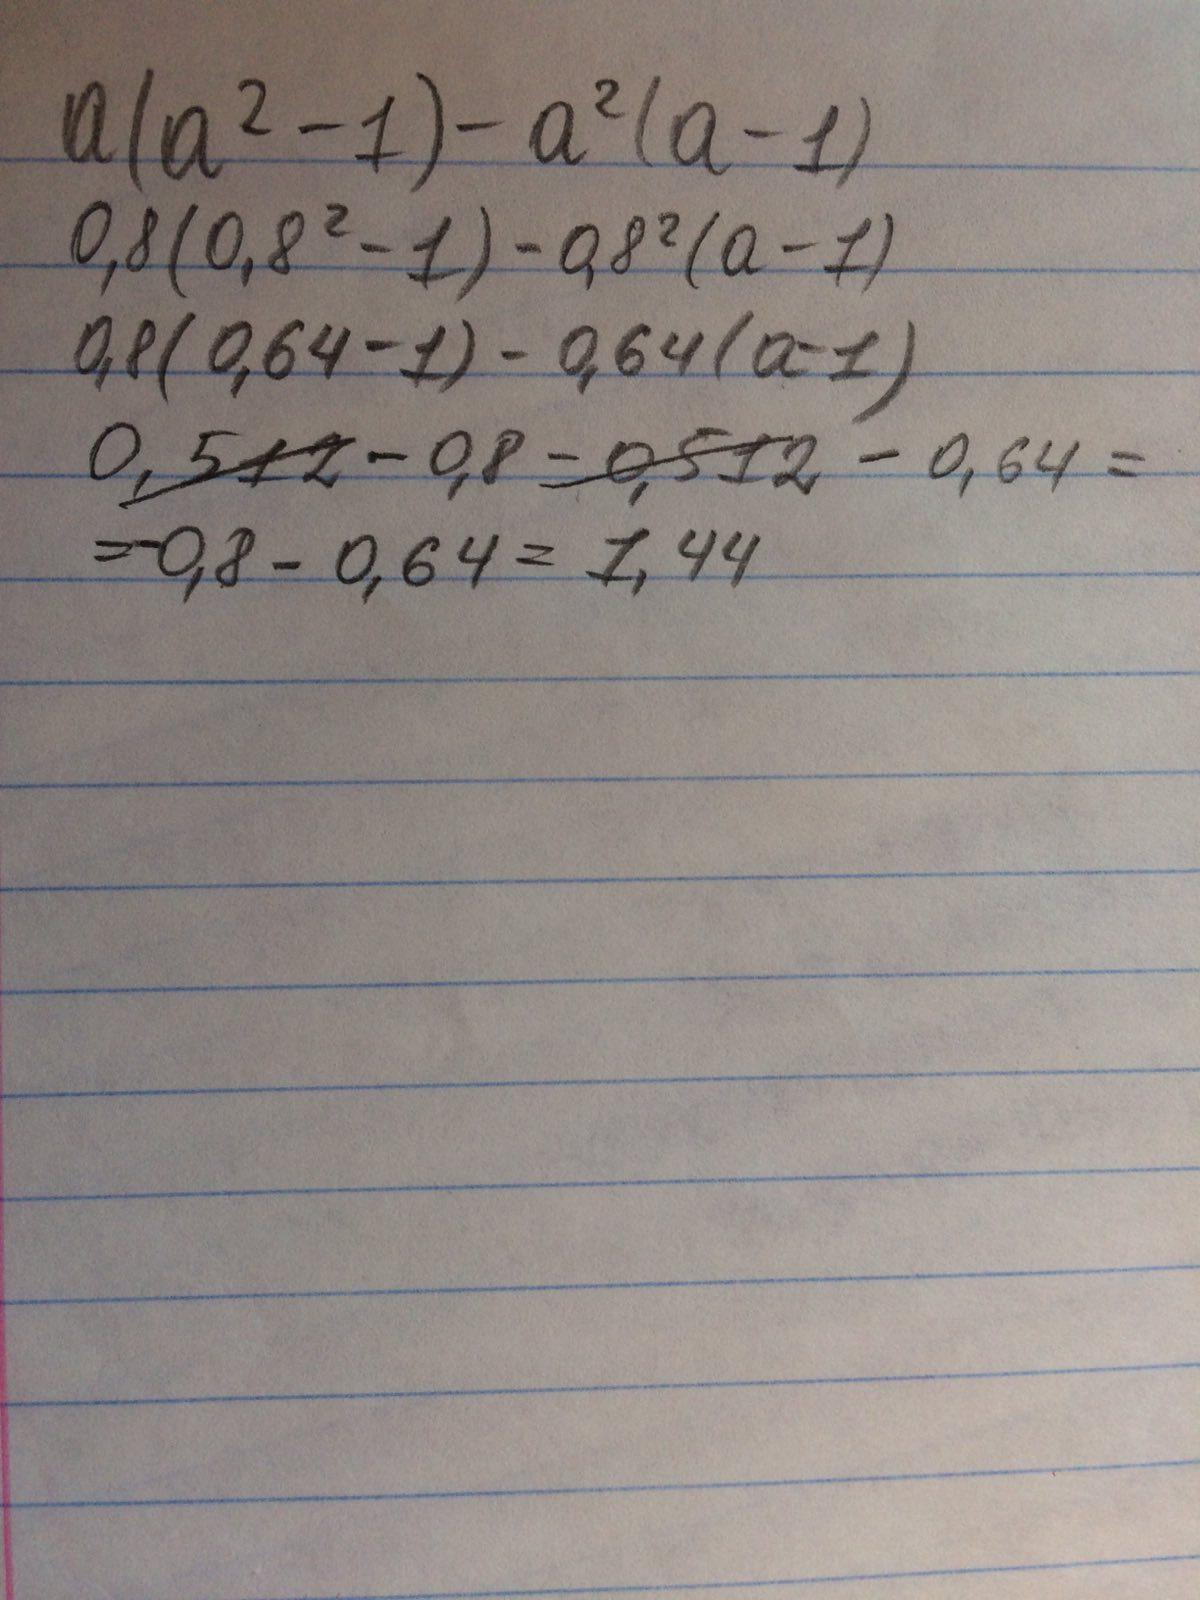 a(a² - 1) - a²(a - 1)
0,8(0,8² - 1) - 0,8²(a - 1)
0,8(0,64 - 1) - 0,64(a - 1)
0,512 - 0,8 - 0,512 - 0,64 =
= -0,8 - 0,64 = 1,44